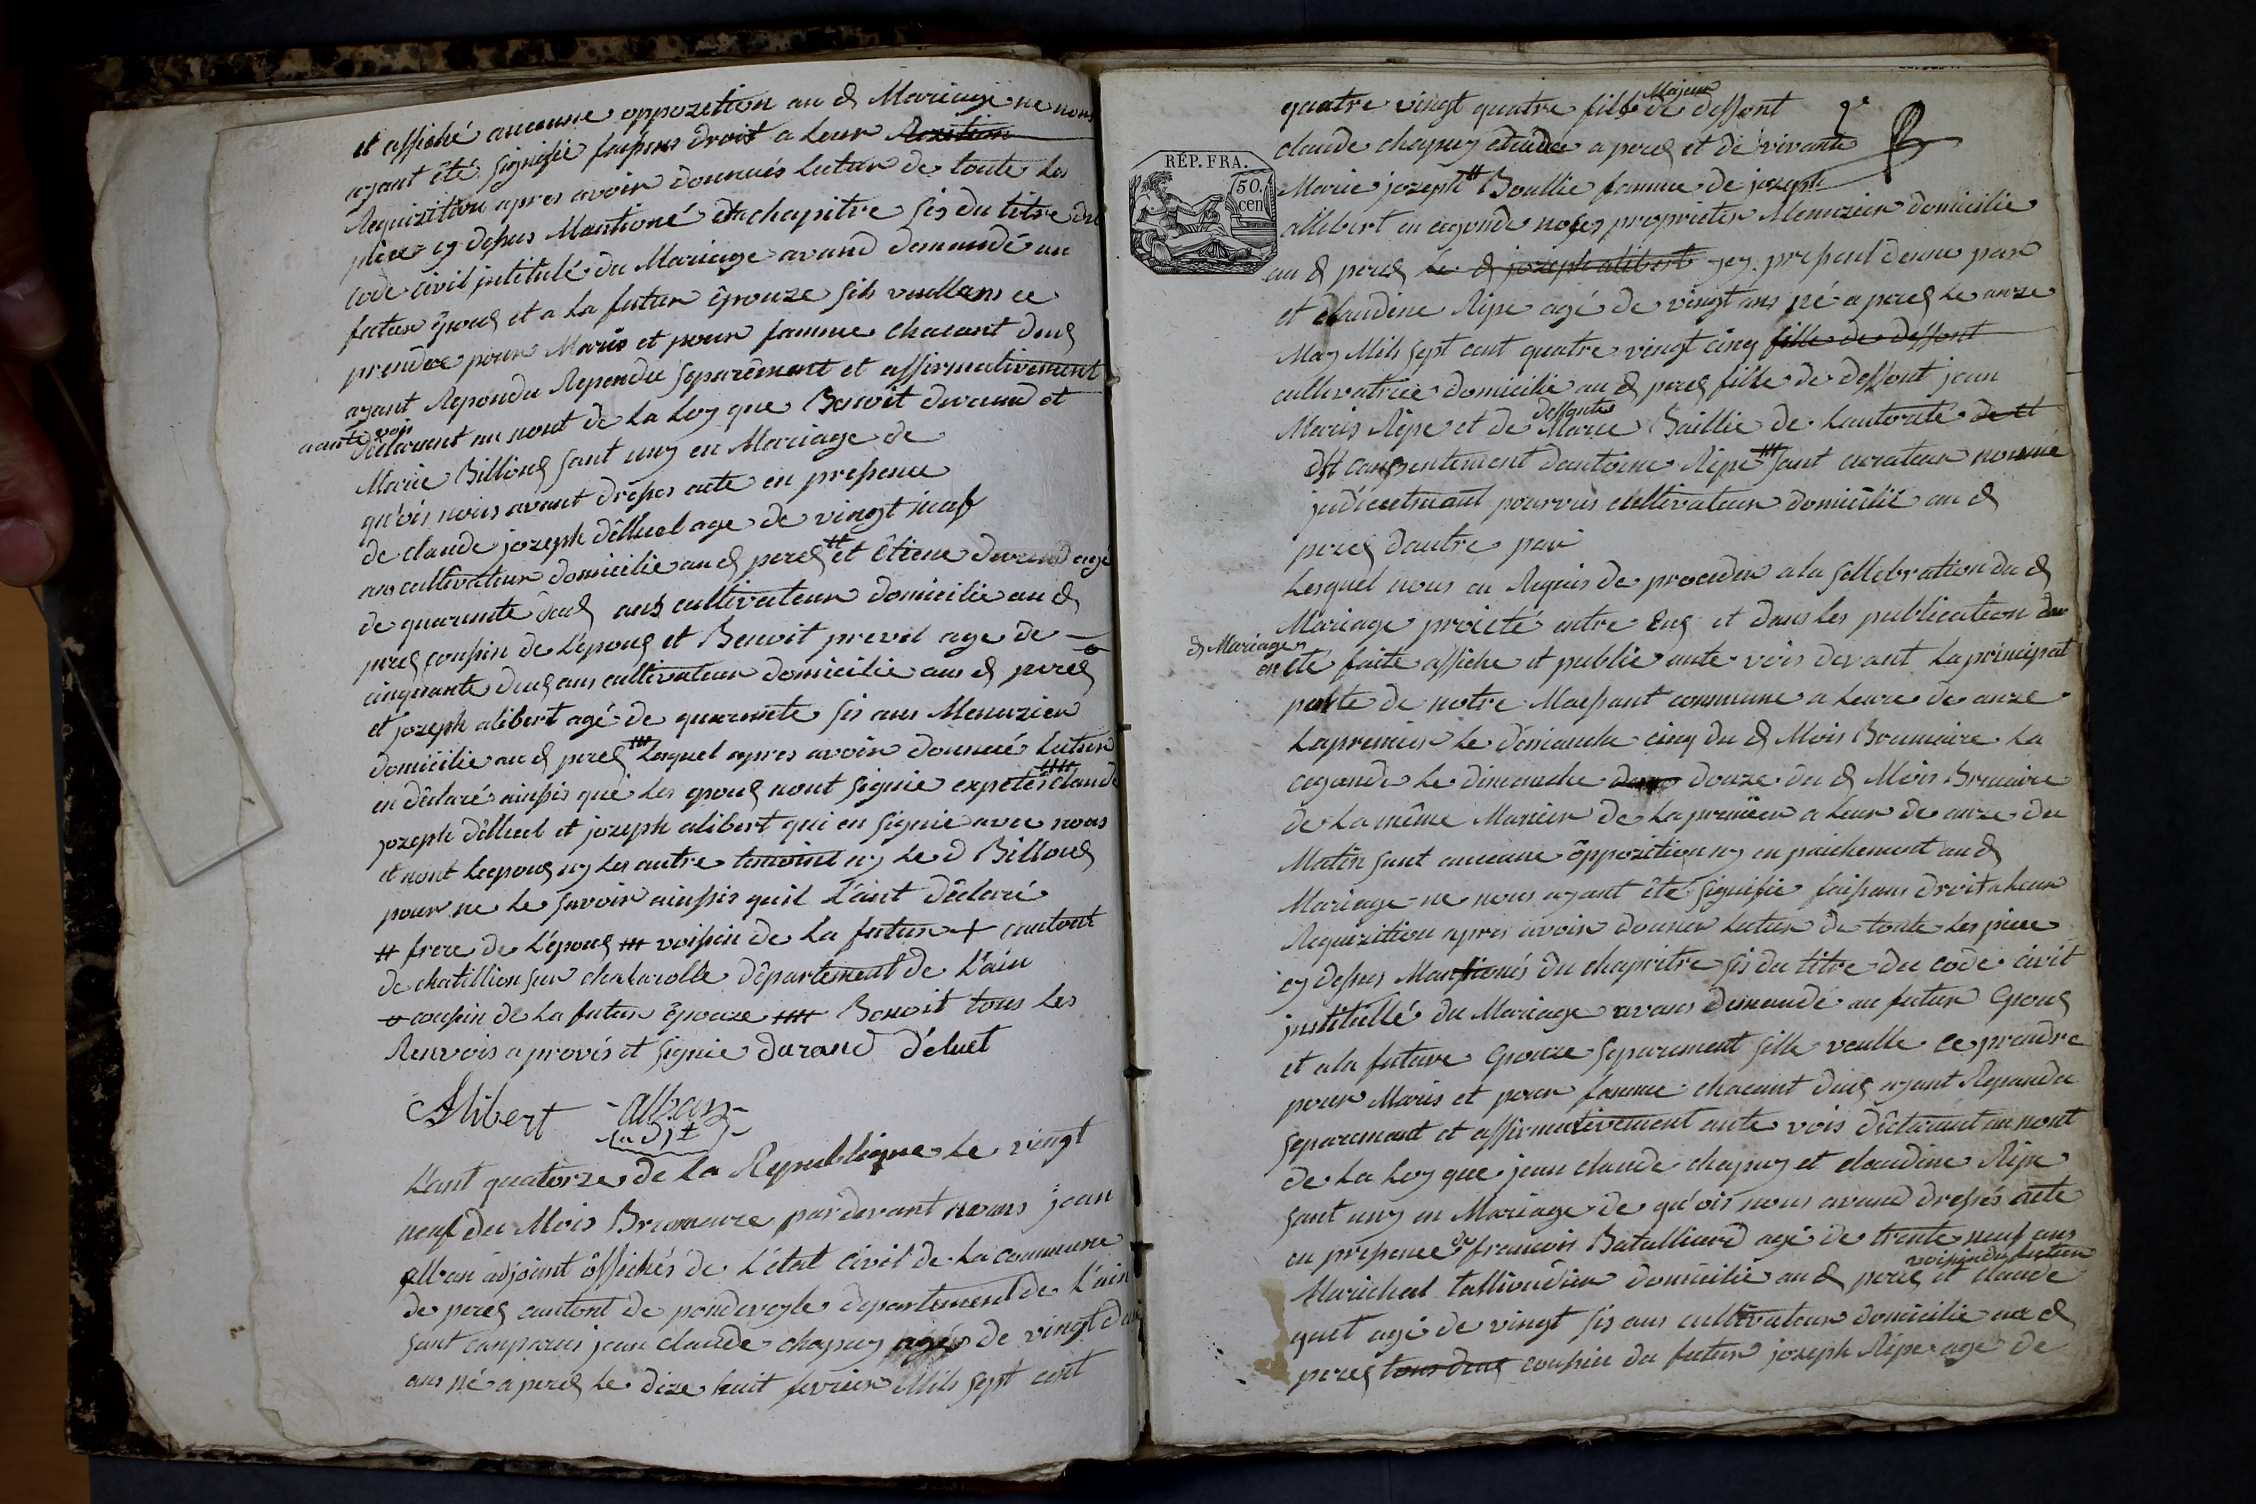 et affiché aucunne oppozition au d Mariage ne nous
ayant été signifié faissans droit a leur Rezition
Requizition apres avoir donnués lutur de toute les
piece cy dessus Mantioné du chapitre sis du titre du
code civil jntitulé du Mariage avand demandé au
futur êpous et a la futur êpouze sils veullans ce
prendre pour Maris et pour famme chacant deus
ayant Repondu Reponde separêment et affirmativement
aante vois
dêclarant au nont de la Loy que Benoit durand et
Marie Billious sant uny en Mariage de
qu'ois nous avant dresses acte en pressence
de claude jozeph dêlluel age de vingt neuf
ans cultivateur domicilie au d peres # et êtiene durand agé
de quarante deus ans cultivateur domicilie au d
peres coussin de l'épous et Benoit prevel age de
cinquante deus ans cultivateur domicilie aux d peres
et jozeph alibert agé de quarante sis ans Menuzier
domicilie au d peres ### Lesquel apres avoir donnué lutur
en dêclaré ainssis que les epous nont signie expetés claude
jozeph dêlluel et jozeph alibert qui en signie avec nous
et nont lespous ny les autre temoint ny le d Billous
pour ne le savoir ainssis quil l'aint dêclaré
# frere de l'épous ### voissin de la futur + cantont
de chatillion sur chalarolle dêpartement de l'ain
o coussin de la futur êpouze #### Benoit tous les
Renvois aprovés et signie durand déluet
Alibert alban
adjt
L'ant quatorze de la Republique le vingt
neuf du Mois Brumaire pardevant nous jean
alban adjoint ôffichés de l'état civil de la commune
de peres cantont de pondevoyle departement de l'ain
sant conparus jean claude chapuy agés de vingt deus
ans né a peres le dize huit fevrier Mils sept cent
quatre vingt quatre fils Majeur de deffont
claude chapuy a peres et de vivante
Marie jozeph # Boullie famme de jozeph
allibert en cegonde noses proprieter Menuzier domicilie
au d peres le d jozeph alibert jcy pressent deune par
et claudine Ripe agé de vingt ans né a peres le onze
May Mils sept cent quatre vingt cinq fille de deffont
cultivatrice domicilie au d peres fille de deffont jean
Maris Ripe et de deffante Marie Baillie de Lautorité de et
du conssentement dantoine Ripe ### sant curateur nommé
judicietmant pourvus cultivateur domicilié au d
peres dautre par
Lesquel nous en Requis de proceder a la sellebration du d
Mariage proieté entre Eus et dans les publication du
d Mariage
on été faite affiche et publie aute vois devant la principal
porte de notre Maissant commune a leure de onze
Lapremier le dimanche cinq du d Mois Brumaire la
cegonde le dimanche douze du d Mois Brumaire
de la même Manier de la premier a leur de onze du
Matin sant aucunne ôppozition ny en paichement au d
Mariage ne nous ayant été signifie faissans droit a leur
Requizition apres avoir donner lutur de toute les piece
cy dessus Mantionés du chapitre sis du titre du code civil
jnstitullé du Mariage avans demandé au futur Epous
et a la future Epouze separement sille veulle ce prendre
pour Maris et pour famme chacant deus ayant Repandu
separement et affirmativement aute vois dêclarant au nont
de la Loy que jean claude chapuy et claudine Ripe
sant uny en Mariage de qu'ois nous avand dressés acte
en pressence de francois Batalliard agé de trente neuf ans
Marichal tallioudier domicilié au d peres voissin du futur et claude
guet agé de vingt sis ans cultivateur domicilie au d
peres tous deus coussin du futur jozeph Ripe age de
RÉP. FRA.
50.
cen